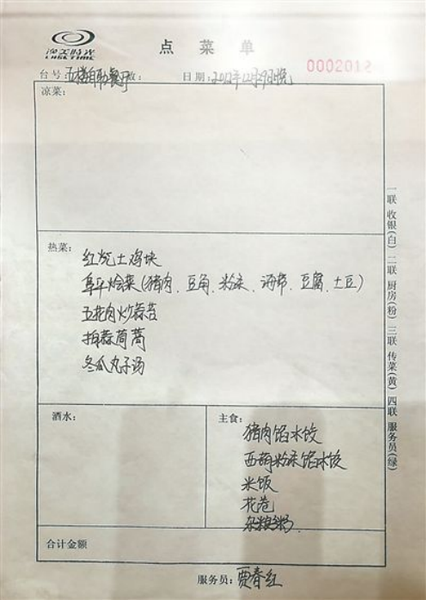 凉文时光
LHSETIME
点菜单
0002012
台号:五楼自助餐厅 日期:2012年12月29日晚
凉菜:
热菜:
红烧土鸡块
阜平烩菜(猪肉、豆角、粉条、海带、豆腐、土豆)
五花肉炒蒜苔
拍蒜茼蒿
冬瓜丸子汤
酒水:
主食:
猪肉馅水饺
西葫粉条馅水饺
米饭
花卷
杂粮粥
合计金额
服务员:贾春红
一联 收银(白) 二联 厨房(粉) 三联 传菜(黄) 四联 服务员(绿)